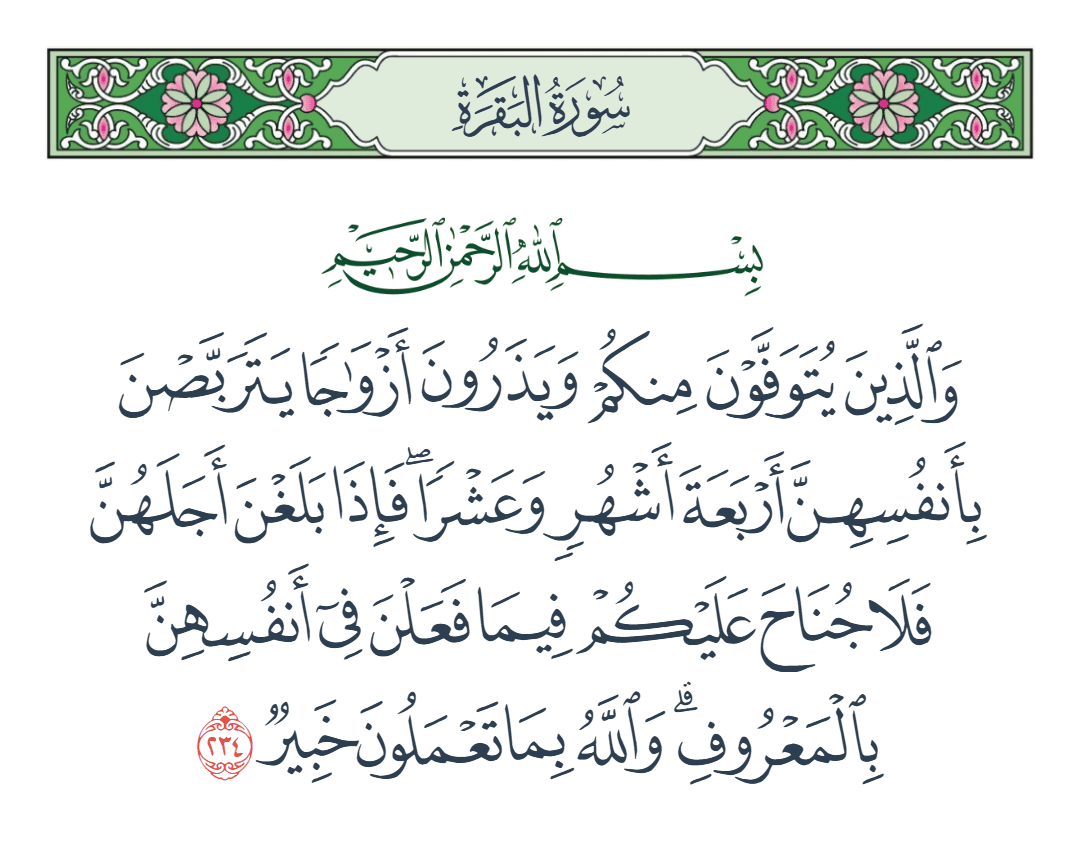 سُورَةُ البَقَرَةِ
بِسْمِ ٱللَّهِ ٱلرَّحْمَٰنِ ٱلرَّحِيمِ
وَٱلَّذِينَ يُتَوَفَّوْنَ مِنكُمْ وَيَذَرُونَ أَزْوَٰجًا يَتَرَبَّصْنَ
بِأَنفُسِهِنَّ أَرْبَعَةَ أَشْهُرٍ وَعَشْرًا ۖ فَإِذَا بَلَغْنَ أَجَلَهُنَّ
فَلَا جُنَاحَ عَلَيْكُمْ فِيمَا فَعَلْنَ فِىٓ أَنفُسِهِنَّ
بِٱلْمَعْرُوفِ ۗ وَٱللَّهُ بِمَا تَعْمَلُونَ خَبِيرٌ ٢٣٤